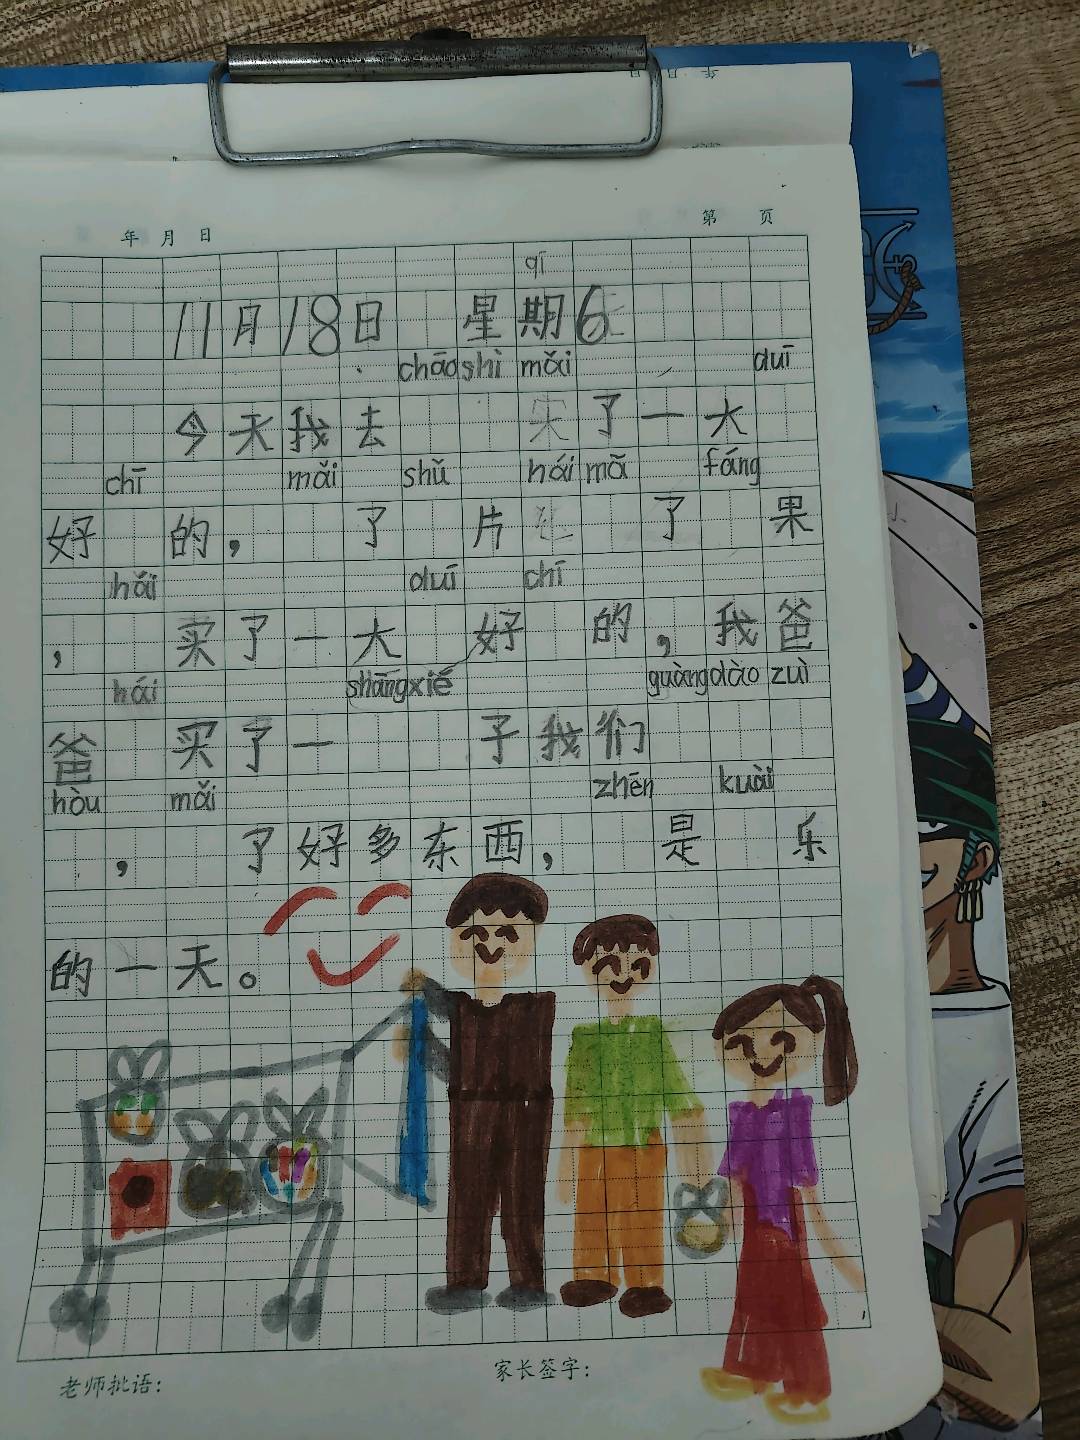 年 月 日 第 页
qī
11月18日 星期6
chāo shì mǎi duī
今天我去 了一大
chī mǎi shǔ hái mā fáng
好 的, 了 片 了 果
hái duī chī
, 买了一大 好 的,我爸
hái shāngxié guàngdào zuì
爸 买了一 子我们
hòu mǎi zhēn kuài
, 了好多东西, 是 乐
的一天。
老师批语: 家长签字: